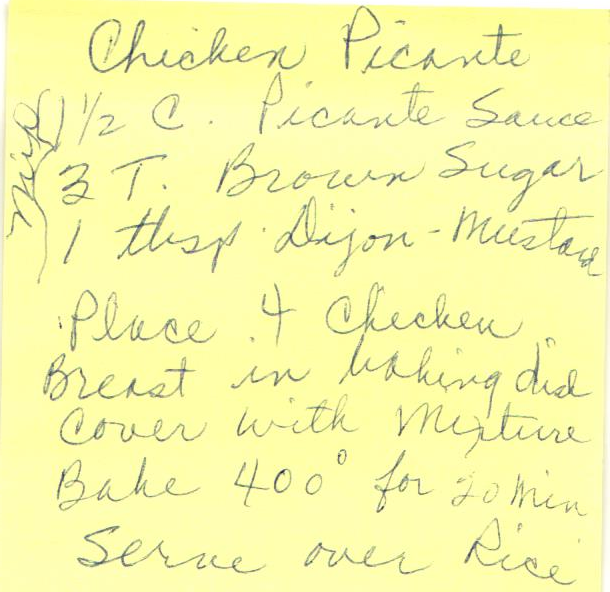 Chicken Picante
Mix
1 1/2 C. Picante Sauce
3 T. Brown Sugar
1 tbsp. Dijon-Mustard
Place 4 Chicken
Breast in baking dish
Cover with Mixture
Bake 400° for 20 Min
Serve over Rice